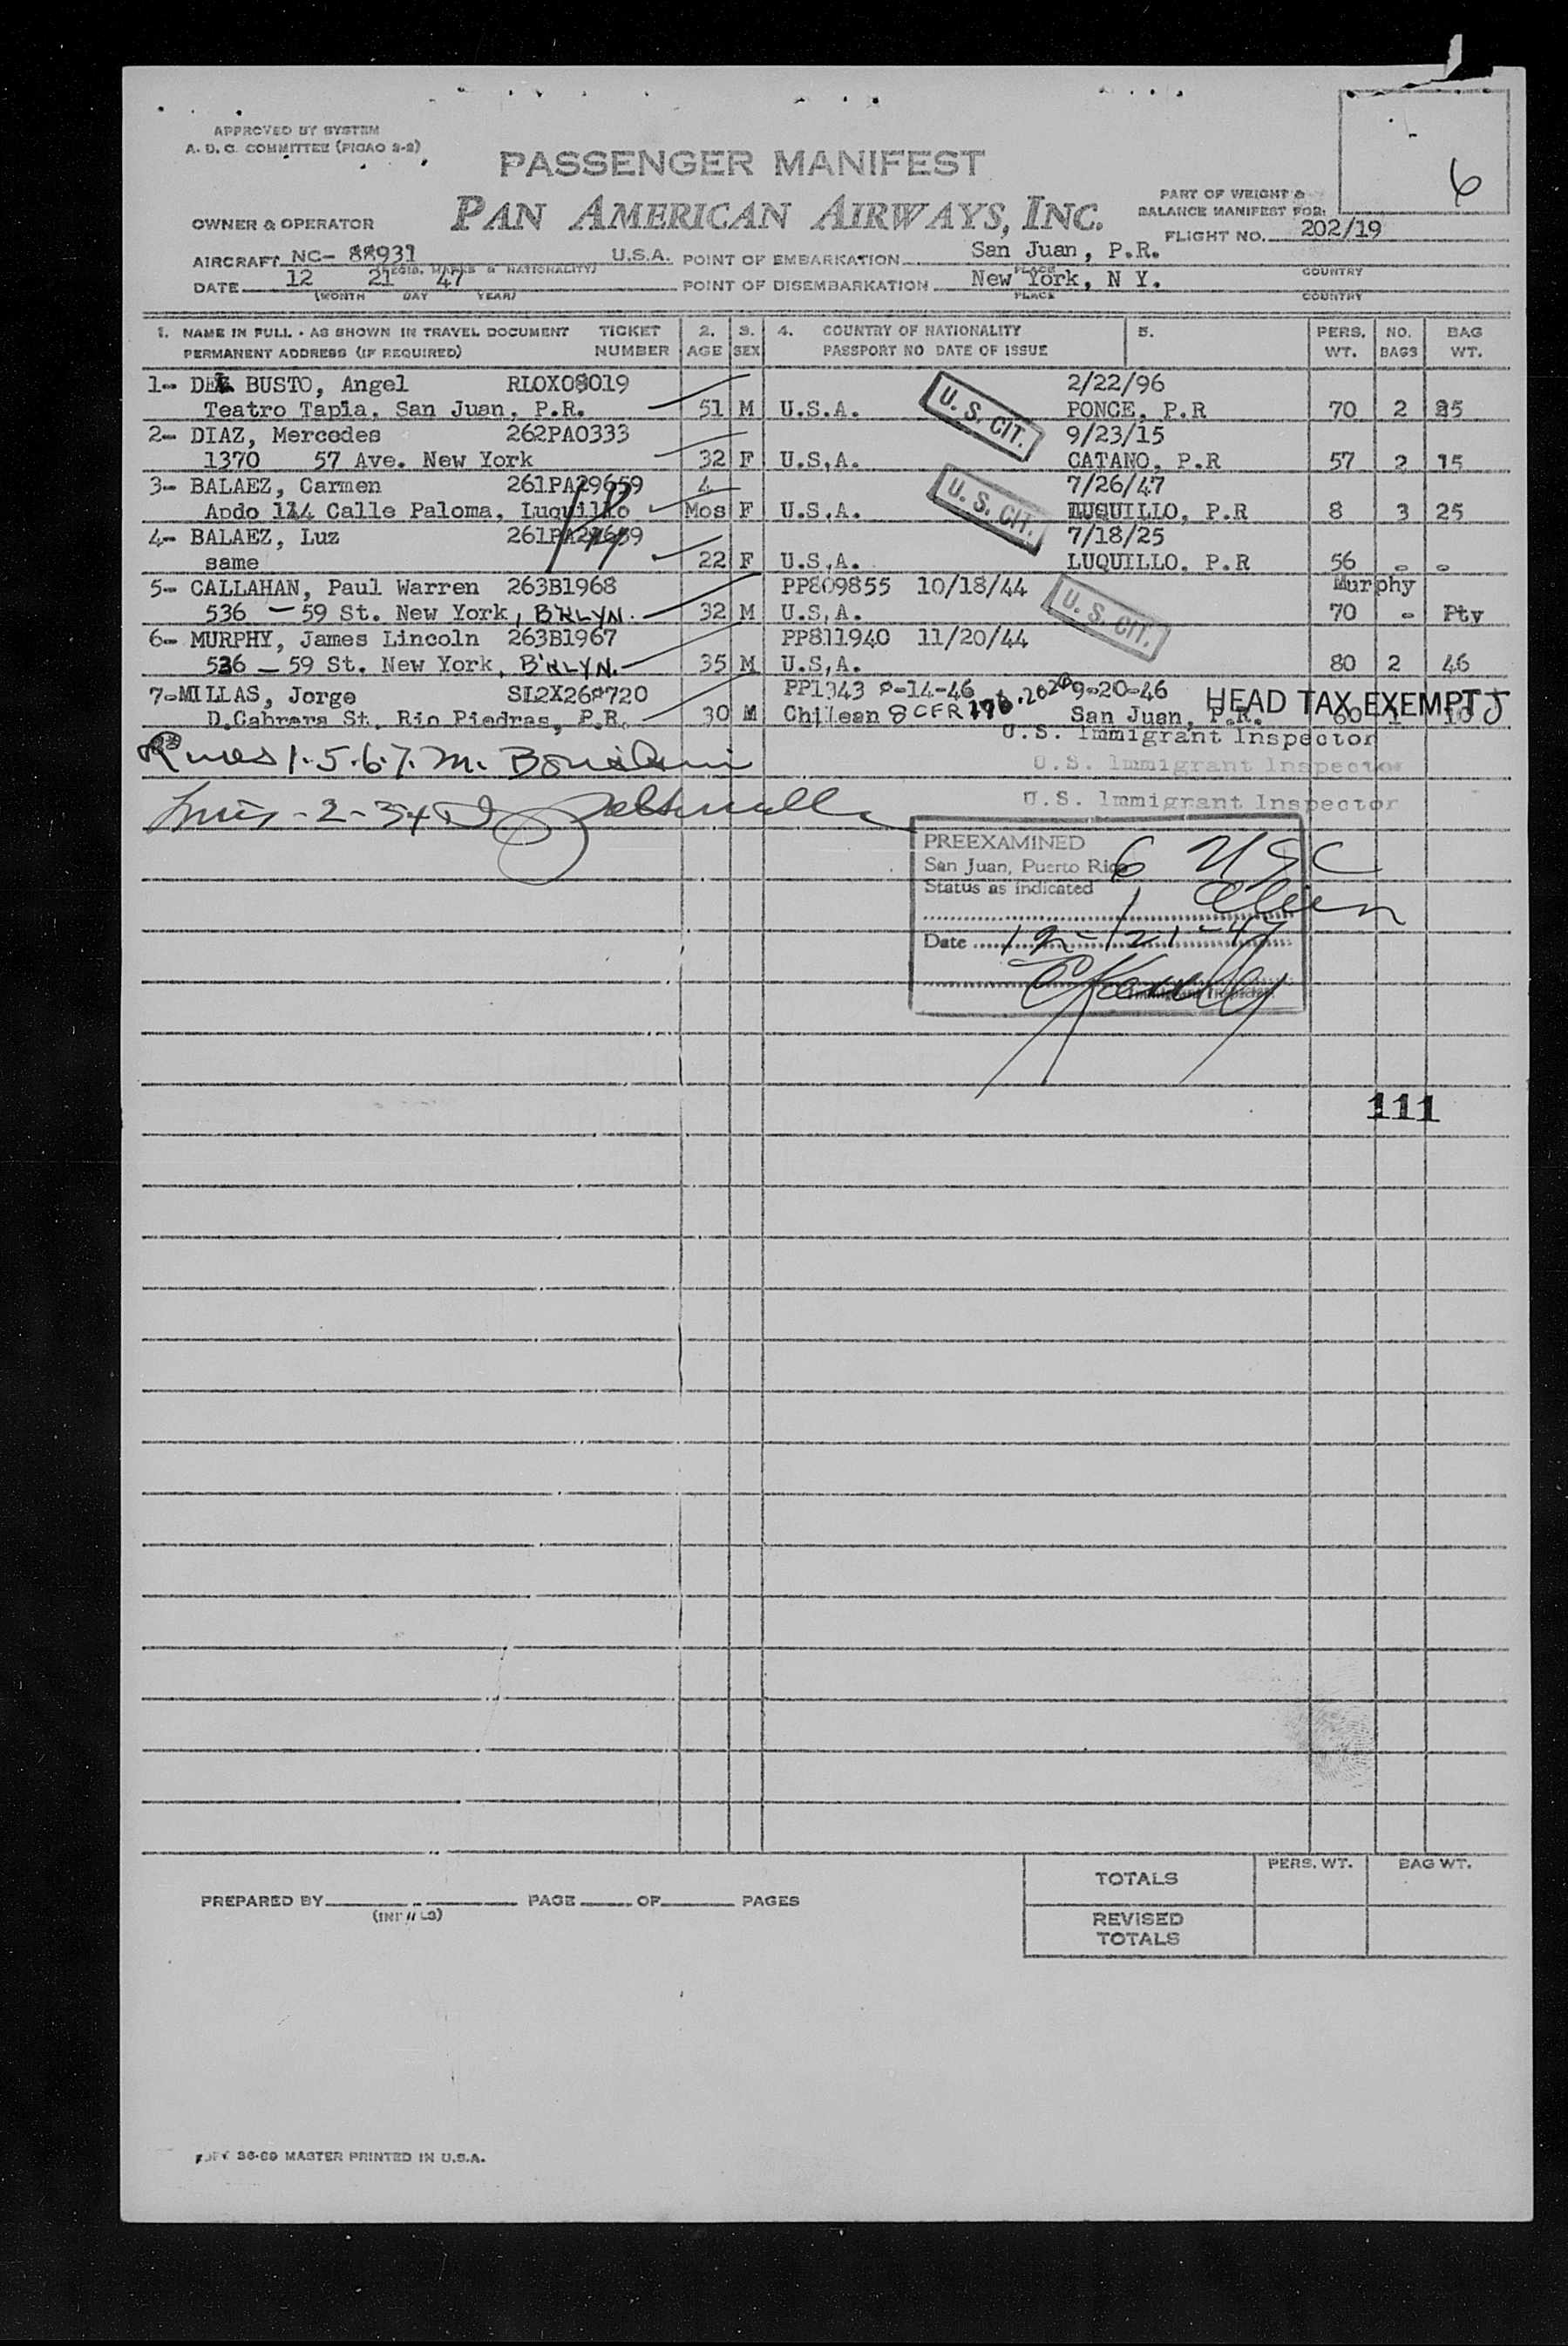 APPROVED BY SYSTEM
A. D. C. COMMITTEE (PICAO 2-2)
PASSENGER MANIFEST
6
PART OF WEIGHT &
BALANCE MANIFEST FOR:
OWNER & OPERATOR
PAN AMERICAN AIRWAYS, INC.
FLIGHT NO. 202/19
AIRCRAFT NC- 88931 U.S.A. POINT OF EMBARKATION San Juan, P.R.
(REGIS. MARKS & NATIONALITY) PLACE COUNTRY
DATE 12 21 47 POINT OF DISEMBARKATION New York, N Y.
(MONTH DAY YEAR) PLACE COUNTRY
1. NAME IN FULL - AS SHOWN IN TRAVEL DOCUMENT TICKET 2. 3. 4. COUNTRY OF NATIONALITY 5. PERS. NO. BAG
PERMANENT ADDRESS (IF REQUIRED) NUMBER AGE SEX PASSPORT NO DATE OF ISSUE WT. BAGS WT.
1- DEL BUSTO, Angel RLOX08019 2/22/96
Teatro Tapia, San Juan, P.R. 51 M U.S.A. U. S. CIT. PONCE, P.R 70 2 25
2- DIAZ, Mercedes 262PA0333 9/23/15
1370 57 Ave. New York 32 F U.S,A. CATANO, P.R 57 2 15
3- BALAEZ, Carmen 261PA29659 4 7/26/47
Apdo 114 Calle Paloma, Luquillo Mos F U.S,A. U. S. CIT. LUQUILLO, P.R 8 3 25
4- BALAEZ, Luz 261PA29659 7/18/25
same 22 F U.S,A. LUQUILLO, P.R 56 - -
5- CALLAHAN, Paul Warren 263B1968 PP809855 10/18/44 Murphy
536 - 59 St. New York, B'RLYN. 32 M U.S,A. U. S. CIT. 70 - Pty
6- MURPHY, James Lincoln 263B1967 PP811940 11/20/44
536 - 59 St. New York, B'RLYN. 35 M U.S,A. 80 2 46
7-MILLAS, Jorge PP1343 8-14-46 9-20-46 HEAD TAX EXEMPT
D.Cabrera St. Rio Piedras, P.R. 30 M Chilean 8 CFR San Juan, P.R. 60 1 10
U.S. Immigrant Inspector
1.5.6.7. M.
U.S. Immigrant Inspector
U.S. Immigrant Inspector
PREEXAMINED
San Juan, Puerto Rico 6 USC
Status as indicated 1 Alien
Date 12-21-47
Immigrant Inspector
111
TOTALS PERS. WT. BAG WT.
PREPARED BY PAGE OF PAGES
(INITIALS)
REVISED
TOTALS
36-69 MASTER PRINTED IN U.S.A.